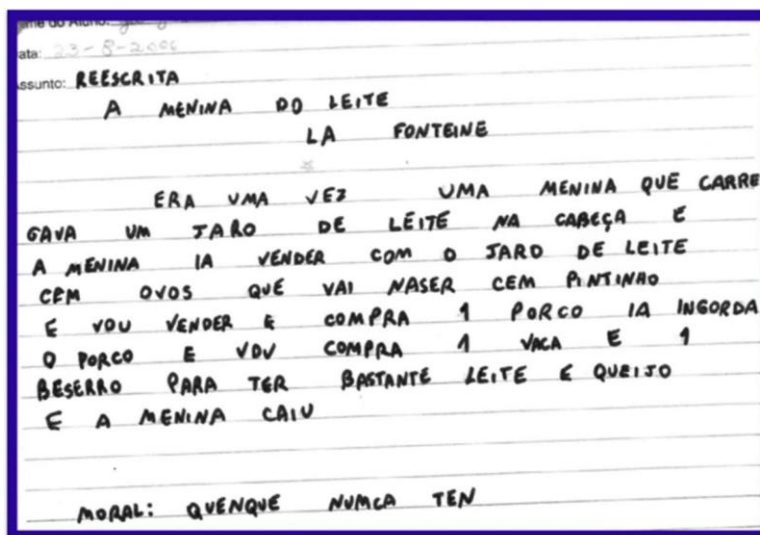 ome do Aluno:
ata: 23-8-2006
ssunto: REESCRITA
A MENINA DO LEITE
LA FONTEINE
ERA UMA VEZ UMA MENINA QUE CARRE
GAVA UM JARO DE LEITE NA CABEÇA E
A MENINA IA VENDER COM O JARO DE LEITE
CEM OVOS QUE VAI NASER CEM PINTINHO
E VOU VENDER E COMPRA 1 PORCO IA INGORDA
O PORCO E VOU COMPRA 1 VACA E 1
BESERRO PARA TER BASTANTE LEITE E QUEIJO
E A MENINA CAIU
MORAL: QUENQUE NUMCA TEN